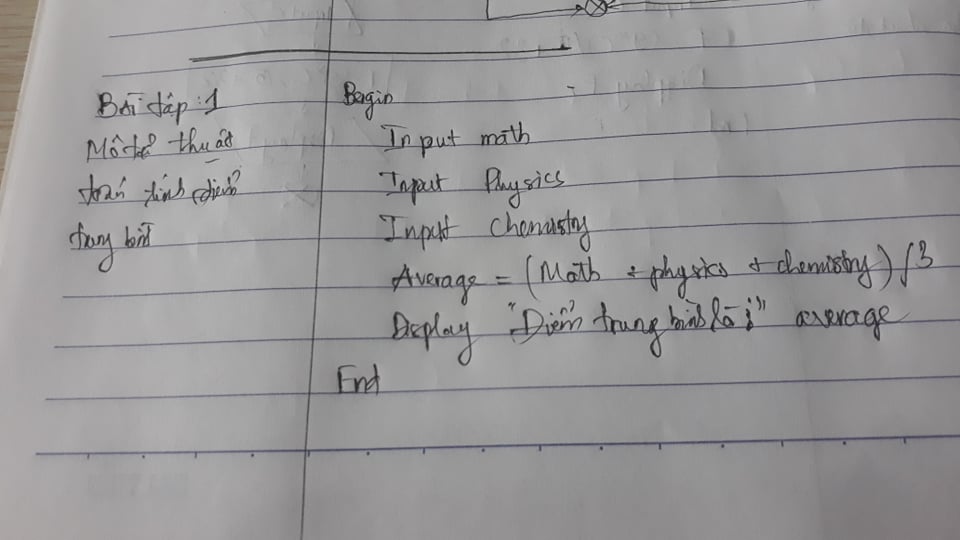 Bài tập :1
Mô tả thuật
toán tính điểm
trung bình
Begin
Input math
Input Physics
Input Chemistry
Average = (Math + physics + chemistry) / 3
Display "Điểm trung bình là :" average
End